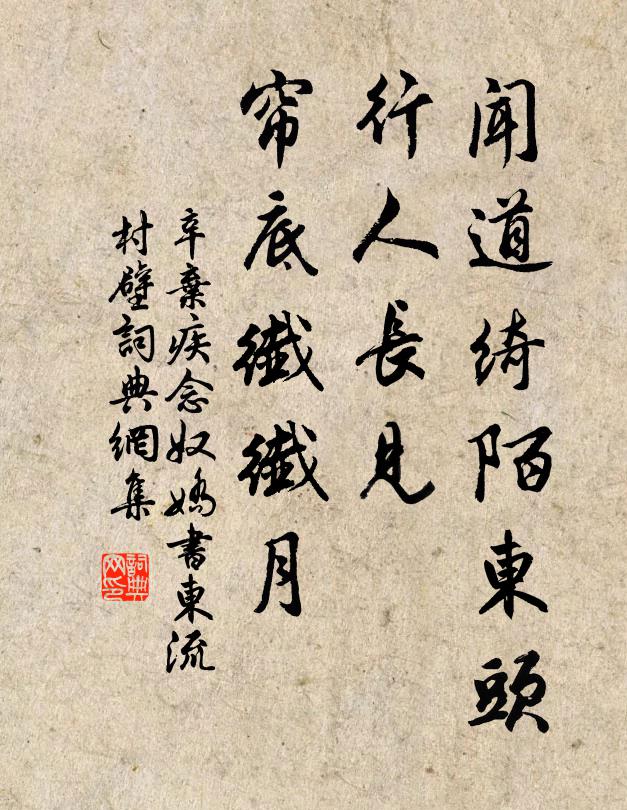 聞道綺陌東頭
行人長見
帘底纖纖月
辛棄疾念奴嬌書東流
村壁詞典網集
詞典网印